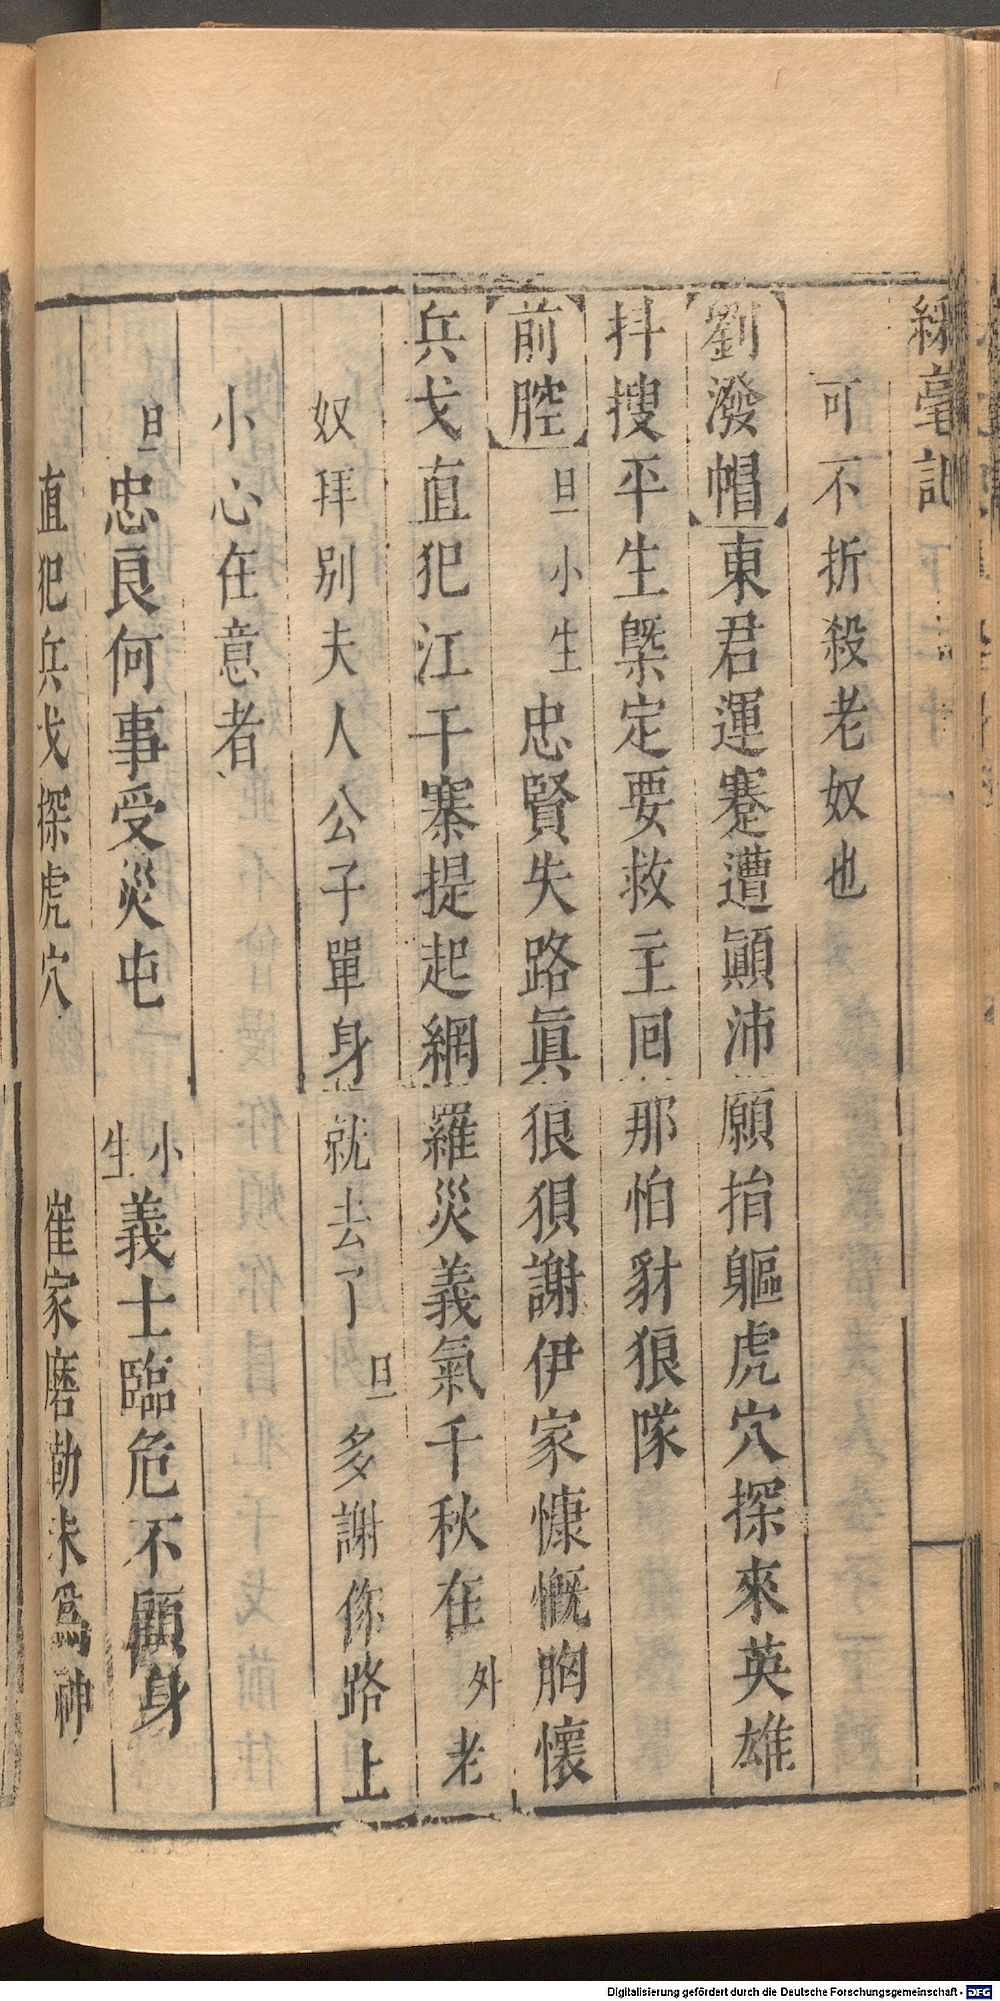 綵毫記
可不折殺老奴也
劉潑帽東君運蹇遭顚沛願捐軀虎穴探來英雄
抖搜平生槩定要救主囘那怕豺狼隊
前腔旦小生忠賢失路眞狼狽謝伊家慷慨胸懷
兵戈直犯江干寨提起網羅災義氣千秋在外老
奴拜別夫人公子單身就去了旦多謝你路上
小心在意者
旦忠良何事受災屯 小生義士臨危不顧身
直犯兵戈探虎穴 崔家磨勘未爲神
Digitalisierung gefördert durch die Deutsche Forschungsgemeinschaft - DFG